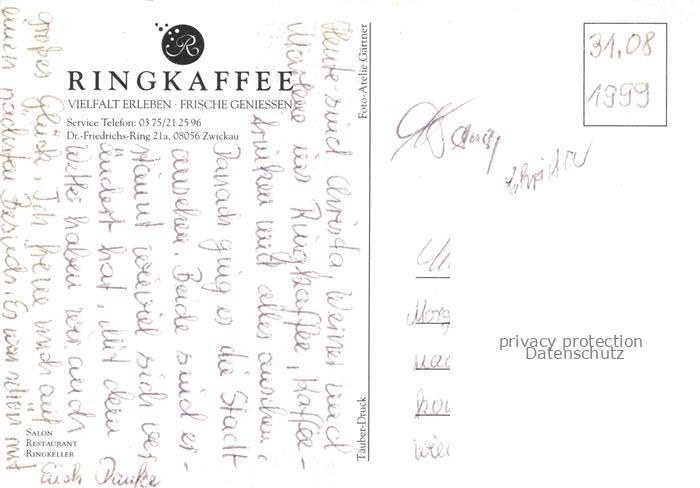 R
RINGKAFFEE
VIELFALT ERLEBEN · FRISCHE GENIESSEN
Service Telefon: 03 75/21 25 96
Dr.-Friedrichs-Ring 21a, 08056 Zwickau
Heute sind Christa Werner und
Marlene ins Ringkaffee, Kaffee-
trinken und alles ansehen.
Danach ging es die Stadt
ansehen. Beide sind er-
staunt wieviel sich ver-
ändert hat. Mit dem
Wetter haben wir auch
großes Glück. Ich freue mich auf
einen nächsten Besuch. Es war schön mit
Euch Danke
SALON
RESTAURANT
RINGKELLER
Foto-Atelie Gärtner
Täuber-Druck
31.08
1999
Christa
Morg
privacy protection
Datenschutz